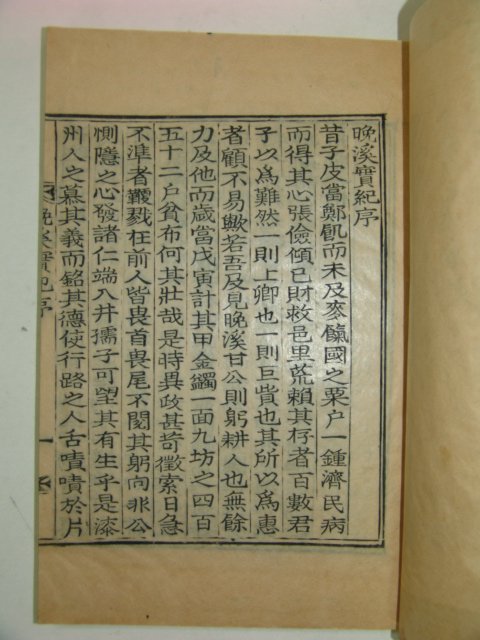 晩溪實紀序
昔子皮當鄭飢而未及麥餼國之粟户一鍾濟民病
而得其心張儉傾已財救邑里荒賴其存者百數君
子以爲難然一則上卿也一則巨貲也其所以爲惠
者顧不易歟若吾及見晩溪甘公則躬耕人也無餘
力及他而歲當戊寅計其甲金蠲一面九坊之四百
五十二户貧布何其壯哉是時異政甚苛徵索日急
不準者鞭戮在前人皆畏首畏尾不閡其躬向非公
惻隱之心發諸仁端入井孺子可望其有生乎是漆
州人之慕其義而銘其德使行路之人舌嘖嘖於片
晩溪實紀序
一